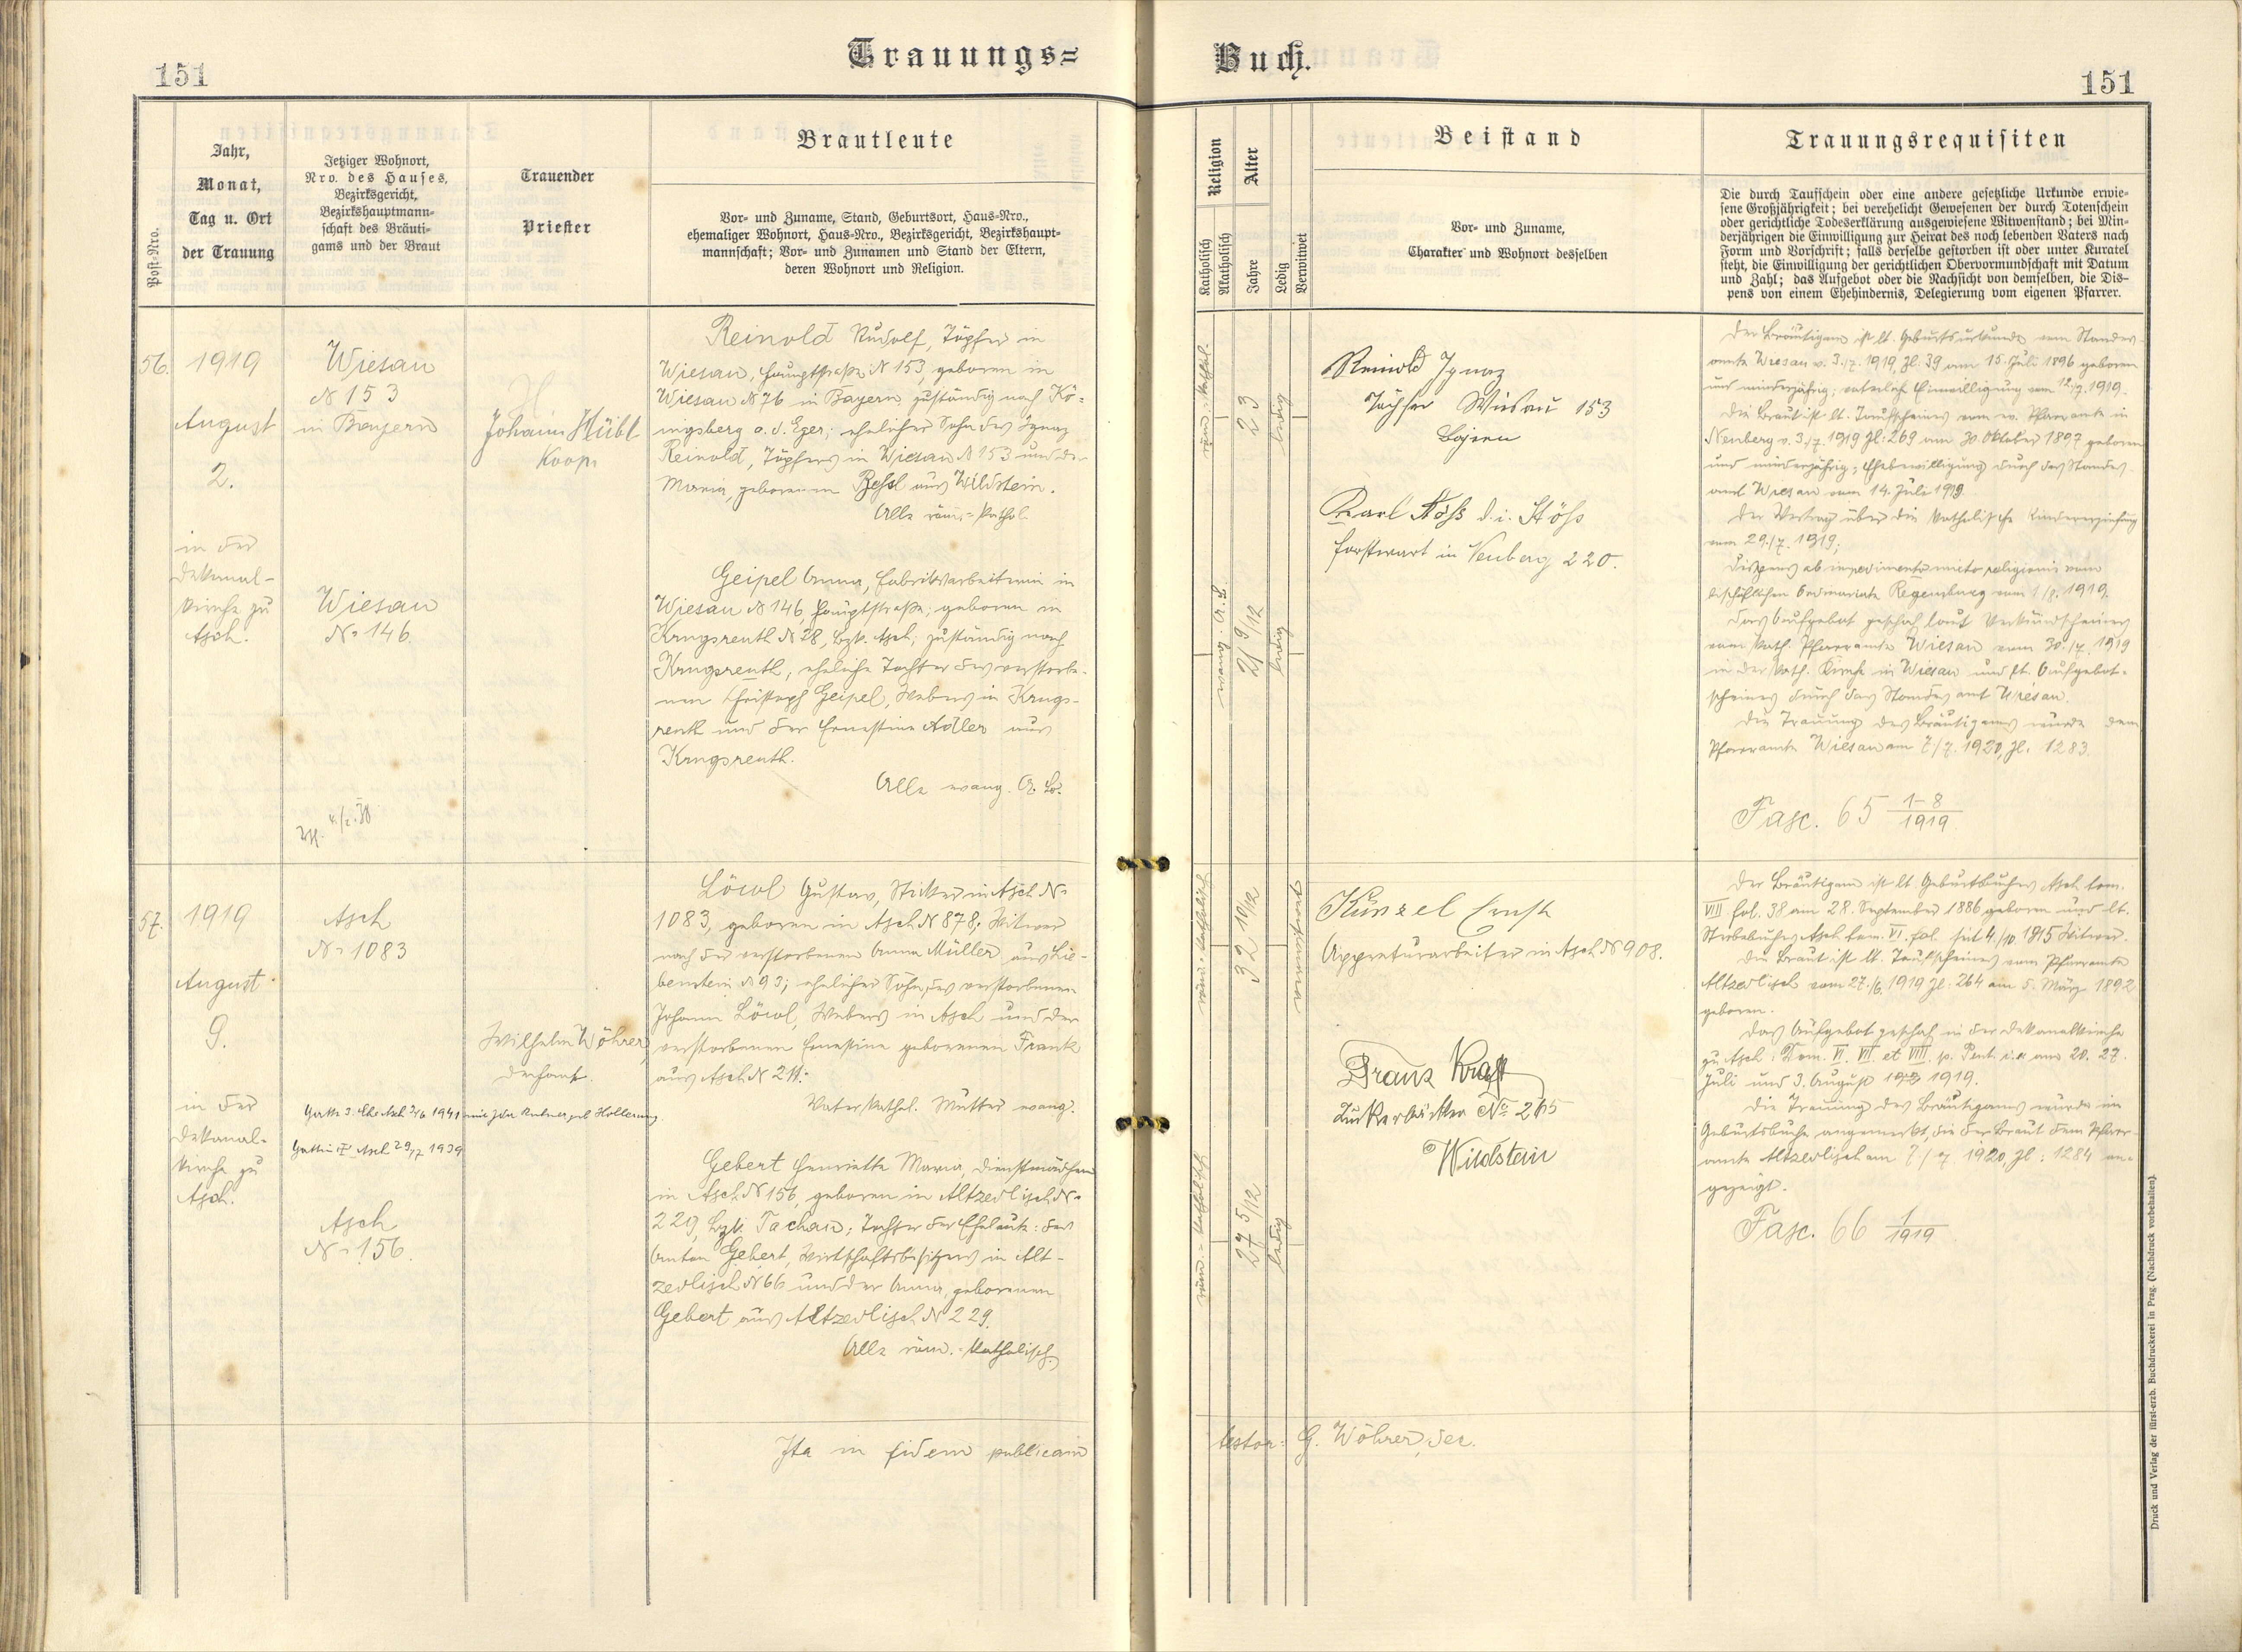 151
Trauungs=
Buch.
151
Post-Nro.
Jahr,
Monat,
Tag u. Ort
der Trauung
Jetziger Wohnort,
Nro. des Hauses,
Bezirksgericht,
Bezirkshauptmann-
schaft des Bräuti-
gams und der Braut
Trauender
Priester
Brautleute
Vor- und Zuname, Stand, Geburtsort, Haus-Nro.,
ehemaliger Wohnort, Haus-Nro., Bezirksgericht, Bezirkshaupt-
mannschaft; Vor- und Zunamen und Stand der Eltern,
deren Wohnort und Religion.
Religion
Katholisch
Akatholisch
Alter
Jahre
Ledig
Verwitwet
Beistand
Vor- und Zuname,
Charakter und Wohnort desselben
Trauungsrequisiten
Die durch Taufschein oder eine andere gesetzliche Urkunde erwie-
sene Großjährigkeit; bei verehelicht Gewesenen der durch Totenschein
oder gerichtliche Todeserklärung ausgewiesene Witwenstand; bei Min-
derjährigen die Einwilligung zur Heirat des noch lebenden Vaters nach
Form und Vorschrift; falls derselbe gestorben ist oder unter Kuratel
steht, die Einwilligung der gerichtlichen Obervormundschaft mit Datum
und Zahl; das Aufgebot oder die Nachsicht von demselben, die Dis-
pens von einem Ehehindernis, Delegierung vom eigenen Pfarrer.
56.
1919
August
2.
in der
Dekanal-
kirche zu
Asch.
Wiesau
N 153
in Bayern
Wiesau
No 146.
Johann Hübl
Koop.
Reinold Rudolf, Töpfer in
Wiesau, Hauptstraße N 153, geboren in
Wiesau N 76 in Bayern, zuständig nach Kö-
nigsberg a. d. Eger; ehelicher Sohn des Ignaz
Reinold, Töpfers in Wiesau N 153 und der
Maria, geborenen Beßl aus Wildstein.
Alle röm.-kathol.
Geipel Anna, Fabriksarbeiterin in
Wiesau N 146, Hauptstraße; geboren in
Krugsreuth N 28, Bzk. Asch; zuständig nach
Krugsreuth, eheliche Tochter des verstorbe-
nen Christoph Geipel, Webers in Krugs-
reuth und der Ernestine Adler aus
Krugsreuth.
Alle evang. A. B.
röm.-kathol.
23
ledig
evang. A. B.
21 9/12
ledig
Reinold Ignaz
Töpfer Wiesau 153
Bayern
Karl Stöß d. i. Stöß
Forstwart in Neuberg 220.
Der Bräutigam ist lt. Geburtsurkunde vom Standes-
amte Wiesau v. 3./7. 1919, Zl. 39 am 15. Juli 1896 geboren
und minderjährig; väterliche Einwilligung vom 12./7. 1919.
Die Braut ist lt. Taufscheines vom ev. Pfarramte in
Neuberg v. 3./7. 1919 Zl: 269 am 30. Oktober 1897 geboren
und minderjährig; Ehebewilligung durch das Standes-
amt Wiesau vom 14. Juli 1919.
Der Vertrag über die katholische Kindererziehung
vom 29./7. 1919;
Dispens ab impedimento mixtae religionis vom
bischöflichen Ordinariate Regensburg vom 1/8. 1919.
Das Aufgebot geschah laut Verkündscheines
vom kath. Pfarramte Wiesau vom 30./7. 1919
in der kath. Kirche in Wiesau und lt. Aufgebot-
scheines durch das Standesamt Wiesau.
Die Trauung des Bräutigams wurde dem
Pfarramte Wiesau am 7./7. 1920, Zl. 1283.
Fasc. 65 1-8/1919
57.
1919
August
9.
in der
Dekanal-
kirche zu
Asch.
Asch
No 1083
Asch
No 156.
Wilhelm Wöhrer,
Dechant.
Gattin I Asch 29/7 1939
Löwl Gustav, Sticker in Asch No
1083, geboren in Asch N 878; Witwer
nach der verstorbenen Anna Müller aus Lie-
benstein N 93; ehelicher Sohn des verstorbenen
Johann Löwl, Webers in Asch und der
verstorbenen Ernestine geborenen Frank
aus Asch N 211.
Vater kathol. Mutter evang.
Gebert Henriette Maria, Dienstmädchen
in Asch N 156, geboren in Altzedlisch No
229, Bzk. Tachau; Tochter der Eheleute: des
Anton Gebert, Wirtschaftsbesitzers in Alt-
zedlisch N 66 und der Anna, geborenen
Gebert aus Altzedlisch N 229.
Alle röm.-katholisch.
röm.-katholisch
32 10/12
röm.-katholisch
27 5/12
ledig
Künzel Ernst
Appreturarbeiter in Asch N 908.
Franz Kraft
Zuckerbäcker No 265
Wildstein
Der Bräutigam ist lt. Geburtbuches Asch tom.
VIII fol. 38 am 28. September 1886 geboren und lt.
Sterbebuches Asch tom. VI. fol. seit 4./10. 1915 Witwer.
Die Braut ist lt. Taufscheines vom Pfarramte
Altzedlisch vom 27./6. 1919 Zl. 264 am 5. März 1892
geboren.
Das Aufgebot geschah in der Dekanalkirche
zu Asch: Dom. VI. VII. et VIII. p. Pent. i. e. am 20. 27.
Juli und 3. August 1919.
Die Trauung des Bräutigams wurde im
Geburtsbuche angemerkt, die der Braut dem Pfarr-
amte Altzedlisch am 7./7 1920, Zl: 1284 an-
gezeigt.
Fasc. 66 1/1919
Ita in fidem publicam
testor: G. Wöhrer, Dec.
Druck und Verlag der fürst-erzb. Buchdruckerei in Prag. (Nachdruck vorbehalten).